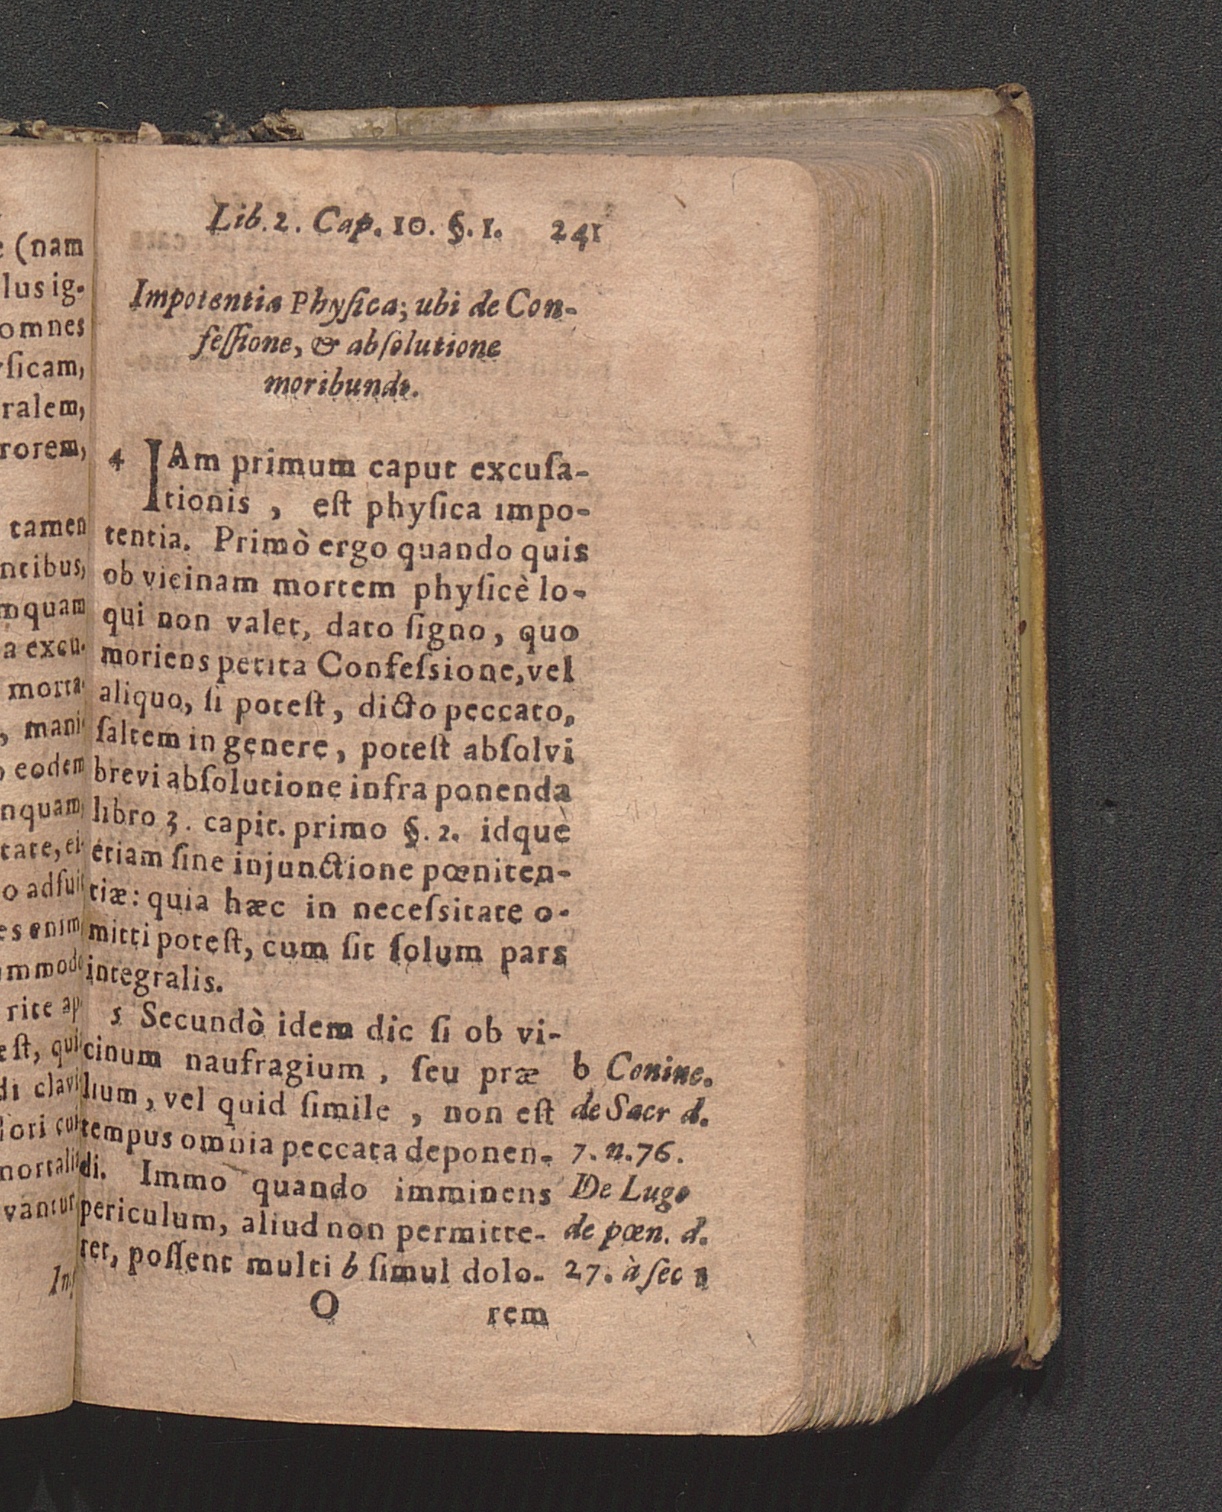 e (nam
lus ig-
omnes
ysicam,
ralem,
rorem,
tamen
ntibus,
mquam
a excu-
morta-
, mani-
o eodem
nquam
tate, ei-
o adfui
es enim
ommodo
rite ap-
est, qui
di clavi
iori cui
mortali
vantur
Im
Lib. 2. Cap. 10. §. 1. 241
Impotentia Physica; ubi de Con-
fessione, & absolutione
moribundi.
4 IAm primum caput excusa-
tionis, est physica impo-
tentia. Primò ergo quando quis
ob vicinam mortem physicè lo-
qui non valet, dato signo, quo
moriens petita Confessione, vel
aliquo, si potest, dicto peccato,
saltem in genere, potest absolvi
brevi absolutione infra ponenda
libro 3. capit. primo §. 2. idque
etiam sine injunctione pœniten-
tiæ: quia hæc in necessitate o-
mitti potest, cum sit solum pars
integralis.
5 Secundò idem dic si ob vi-
cinum naufragium, seu præ
lium, vel quid simile, non est
tempus omnia peccata deponen-
di. Immo quando imminens
periculum, aliud non permitte-
ret, possent multi b simul dolo-
b Coninc.
de Sacr d.
7. n. 76.
De Lugo
de pœn. d.
27. à sec
O rem